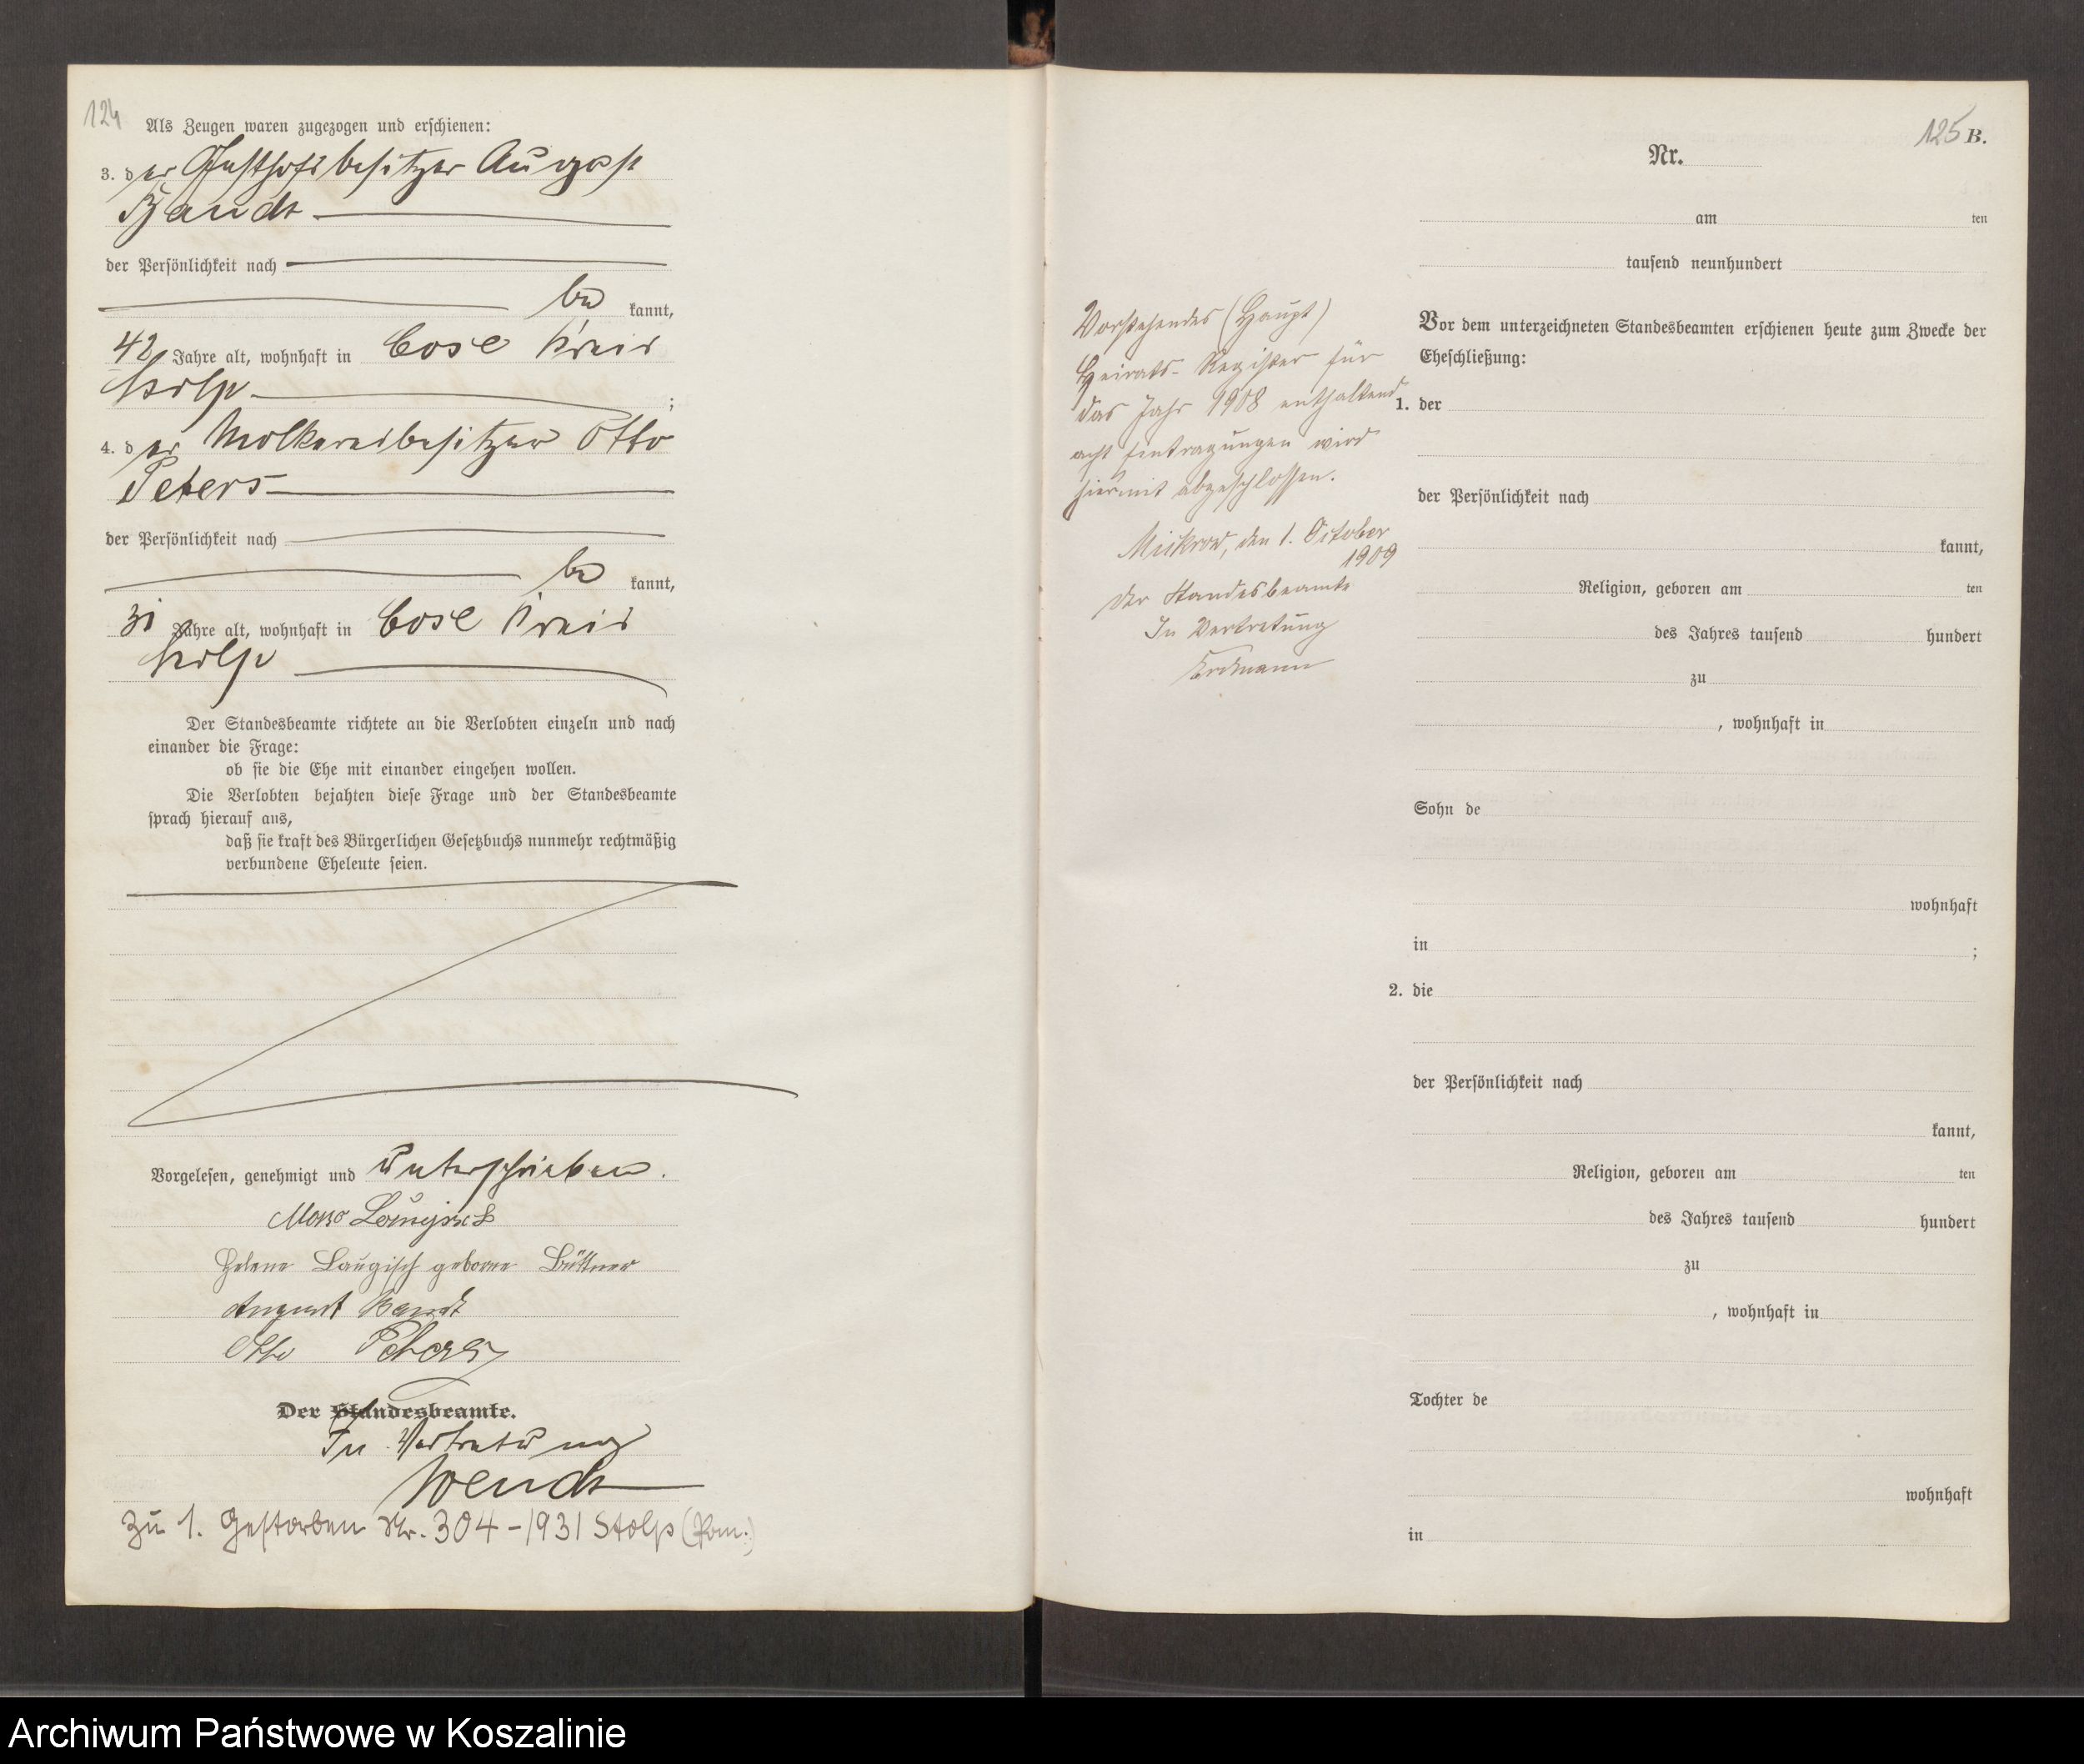 124
Als Zeugen waren zugezogen und erschienen:
3. der Gasthofsbesitzer August
Bandt
der Persönlichkeit nach
be kannt,
42 Jahre alt, wohnhaft in Cose Kreis
Stolp ;
4. der Molkereibesitzer Otto
Peters
der Persönlichkeit nach
be kannt,
31 Jahre alt, wohnhaft in Cose Kreis
Stolp
Der Standesbeamte richtete an die Verlobten einzeln und nach
einander die Frage:
ob sie die Ehe mit einander eingehen wollen.
Die Verlobten bejahten diese Frage und der Standesbeamte
sprach hierauf aus,
daß sie kraft des Bürgerlichen Gesetzbuchs nunmehr rechtmäßig
verbundene Eheleute seien.
Vorgelesen, genehmigt und unterschrieben.
Helene Laugisch geborne Büttner
August Bandt
Otto Peters
Der Standesbeamte.
In Vertretung
Wendt
Zu 1. Gestorben Nr. 304-1931 Stolp (Pom.)
125 B.
Nr.
am ten
tausend neunhundert
Vor dem unterzeichneten Standesbeamten erschienen heute zum Zwecke der
Eheschließung:
1. der
der Persönlichkeit nach
kannt,
Religion, geboren am ten
des Jahres tausend hundert
zu
, wohnhaft in
Sohn de
wohnhaft
in ;
2. die
der Persönlichkeit nach
kannt,
Religion, geboren am ten
des Jahres tausend hundert
zu
, wohnhaft in
Tochter de
wohnhaft
in
Vorstehendes (Haupt)
Heirats-Register für
das Jahr 1908 enthaltend
acht Eintragungen wird
hiermit abgeschlossen.
Mickrow, den 1. October
1909
Der Standesbeamte
In Vertretung
Erdmann
Archiwum Państwowe w Koszalinie